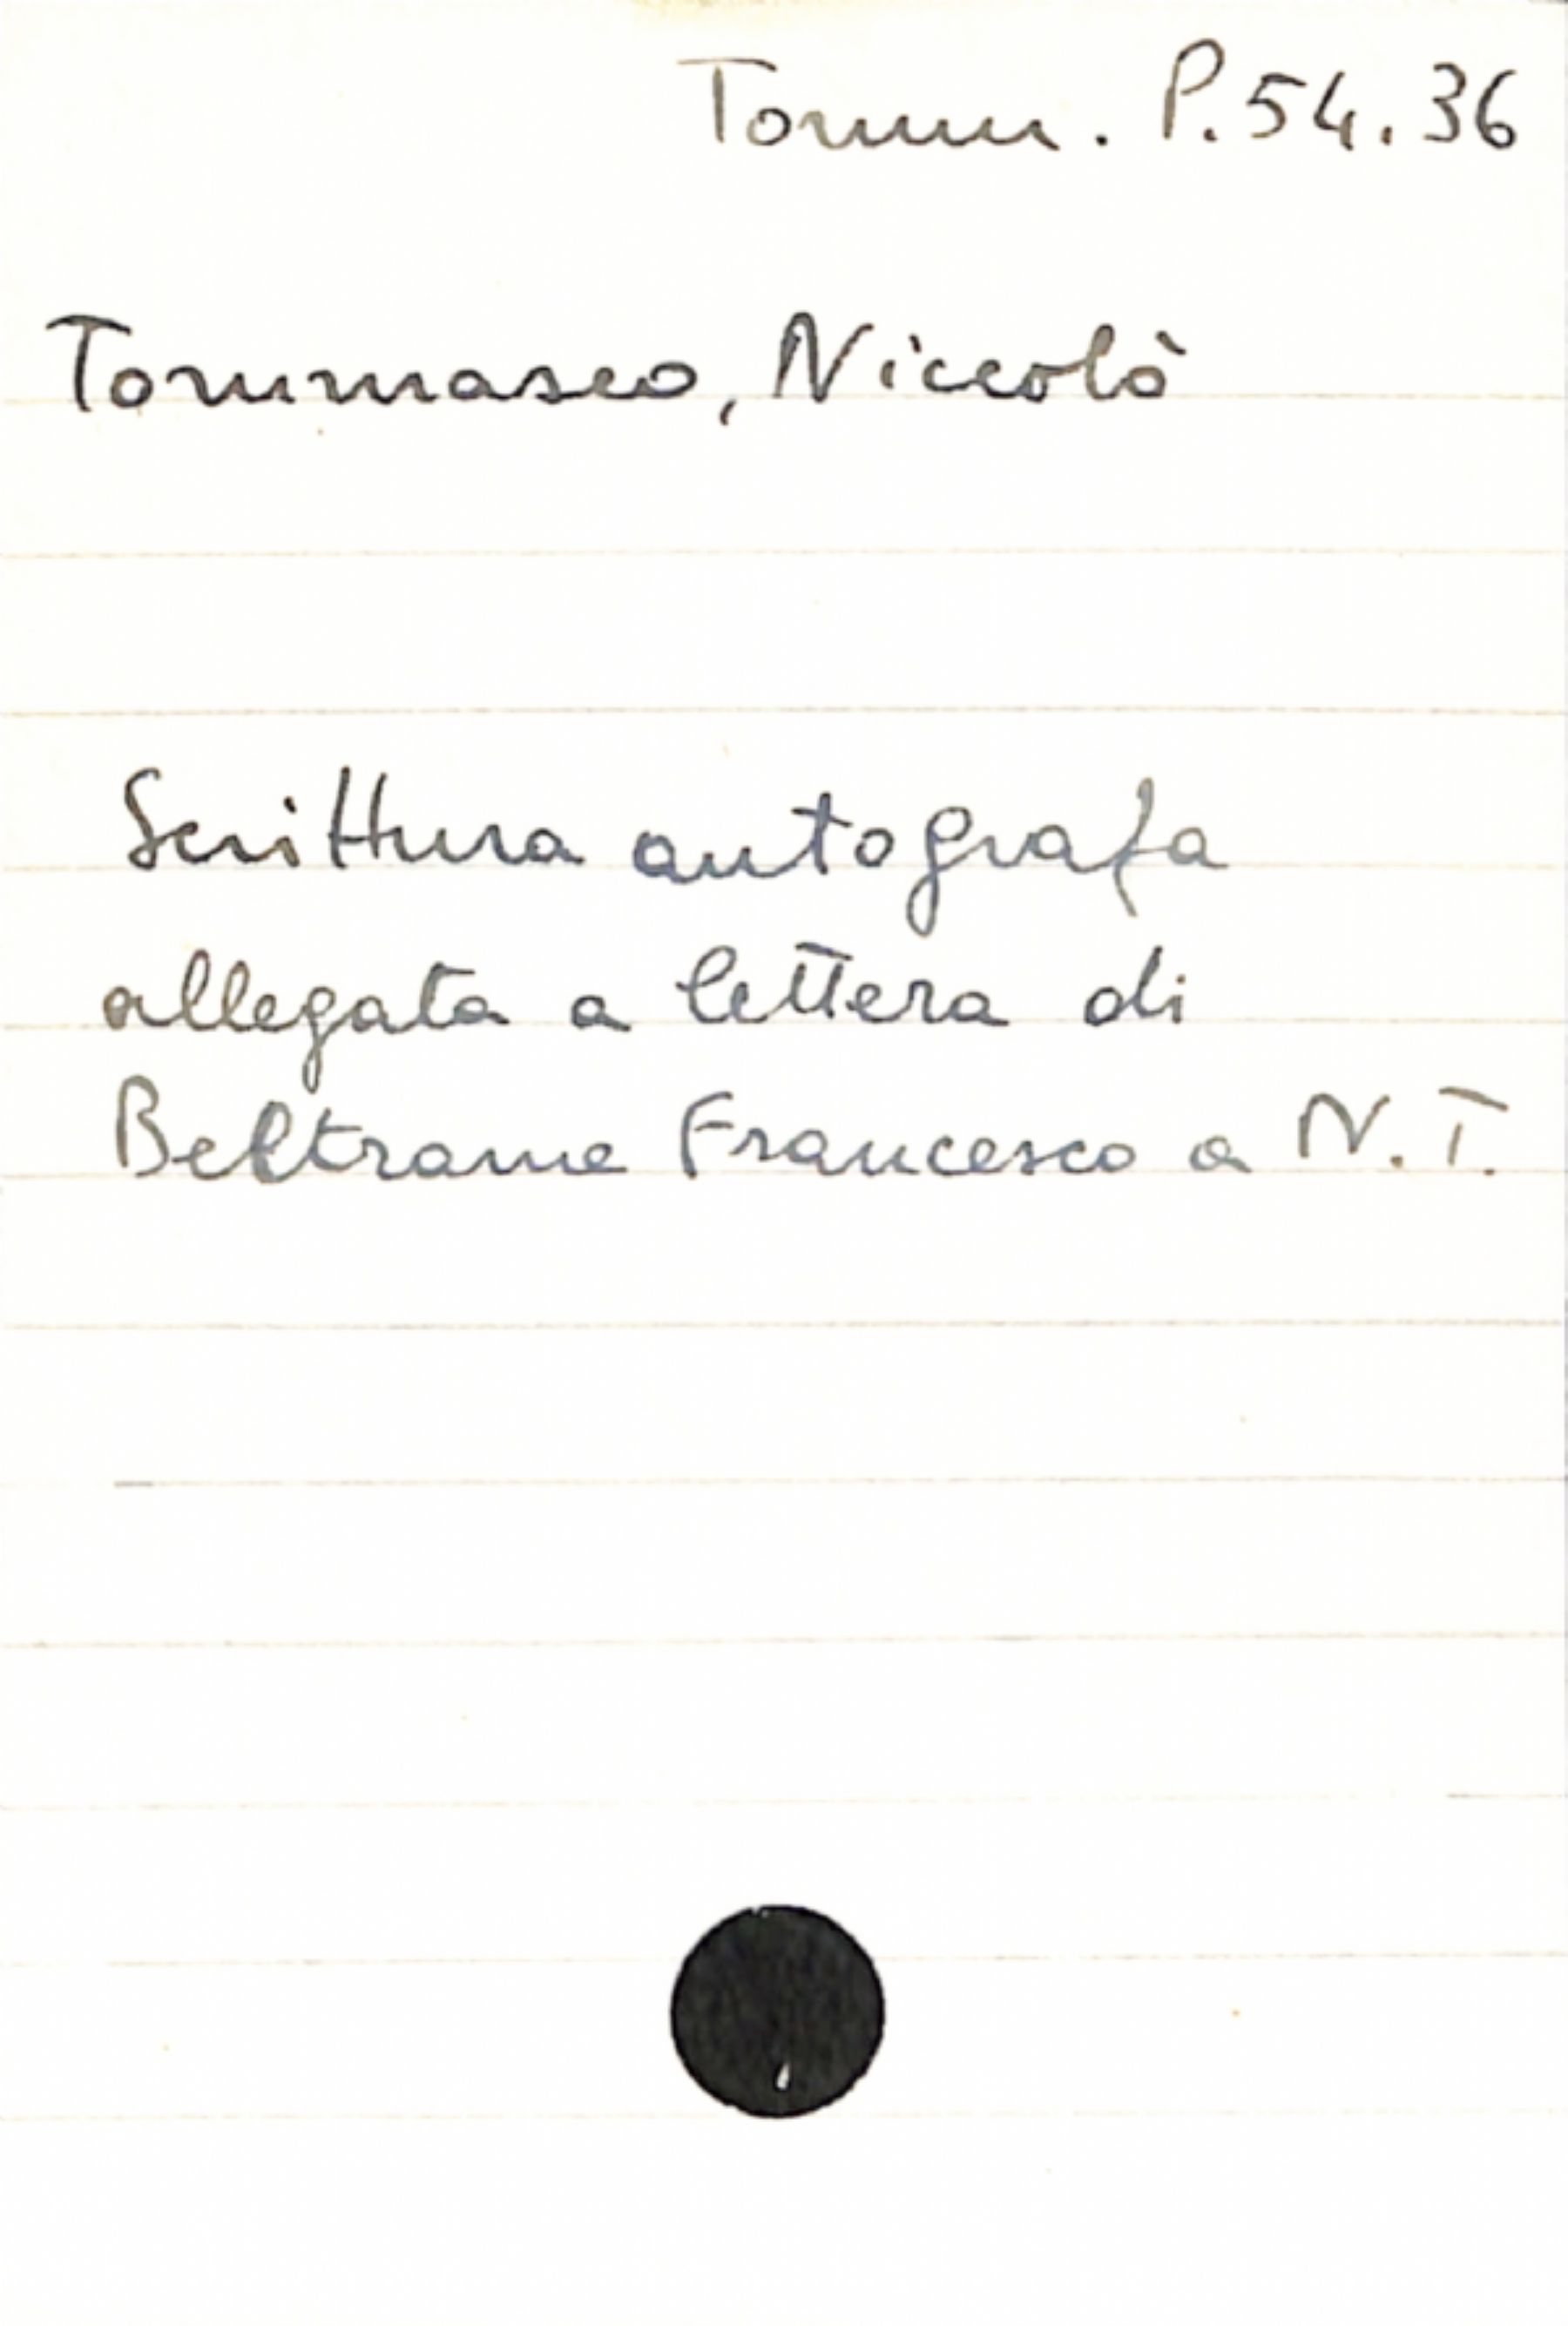 Tomm. P.54.36
Tommaseo, Niccolò
Scrittura autografa
allegata a lettera di
Beltrame Francesco a N.T.